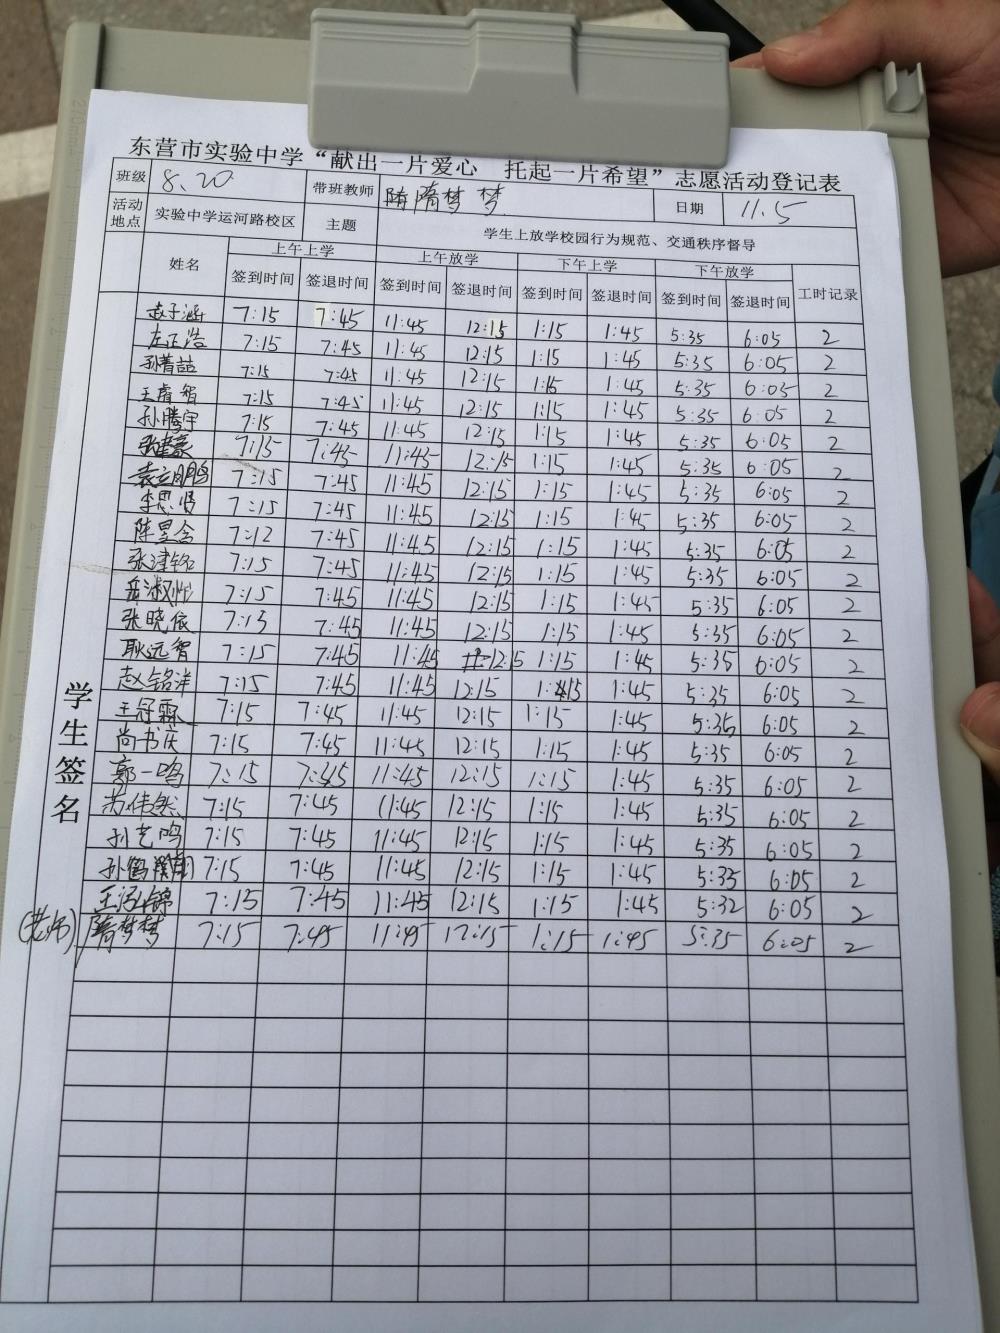 东营市实验中学“献出一片爱心 托起一片希望”志愿活动登记表
班级 8.20 带班教师 隋梦梦 日期 11.5
活动地点 实验中学运河路校区 主题 学生上放学校园行为规范、交通秩序督导
姓名 上午上学 上午放学 下午上学 下午放学 工时记录
签到时间 签退时间 签到时间 签退时间 签到时间 签退时间 签到时间 签退时间
学生签名
赵子涵 7:15 7:45 11:45 12:15 1:15 1:45 5:35 6:05 2
左正浩 7:15 7:45 11:45 12:15 1:15 1:45 5:35 6:05 2
孙菁喆 7:15 7:45 11:45 12:15 1:15 1:45 5:35 6:05 2
王睿智 7:15 7:45 11:45 12:15 1:15 1:45 5:35 6:05 2
孙腾宇 7:15 7:45 11:45 12:15 1:15 1:45 5:35 6:05 2
张建豪 7:15 7:45 11:45 12:15 1:15 1:45 5:35 6:05 2
袁立鹏 7:15 7:45 11:45 12:15 1:15 1:45 5:35 6:05 2
李思贤 7:15 7:45 11:45 12:15 1:15 1:45 5:35 6:05 2
陈昱含 7:12 7:45 11:45 12:15 1:15 1:45 5:35 6:05 2
张津铭 7:15 7:45 11:45 12:15 1:15 1:45 5:35 6:05 2
7:15 7:45 11:45 12:15 1:15 1:45 5:35 6:05 2
张晓依 7:15 7:45 11:45 12:15 1:15 1:45 5:35 6:05 2
耿远智 7:15 7:45 11:45 12:15 1:15 1:45 5:35 6:05 2
赵铭洋 7:15 7:45 11:45 12:15 1:15 1:45 5:35 6:05 2
王冠霖 7:15 7:45 11:45 12:15 1:15 1:45 5:35 6:05 2
尚书庆 7:15 7:45 11:45 12:15 1:15 1:45 5:35 6:05 2
郭一鸣 7:15 7:45 11:45 12:15 1:15 1:45 5:35 6:05 2
尚伟然 7:15 7:45 11:45 12:15 1:15 1:45 5:35 6:05 2
孙艺鸣 7:15 7:45 11:45 12:15 1:15 1:45 5:35 6:05 2
孙鹤翔 7:15 7:45 11:45 12:15 1:15 1:45 5:35 6:05 2
王涵锦 7:15 7:45 11:45 12:15 1:15 1:45 5:32 6:05 2
(老师) 隋梦梦 7:15 7:45 11:45 12:15 1:15 1:45 5:35 6:05 2